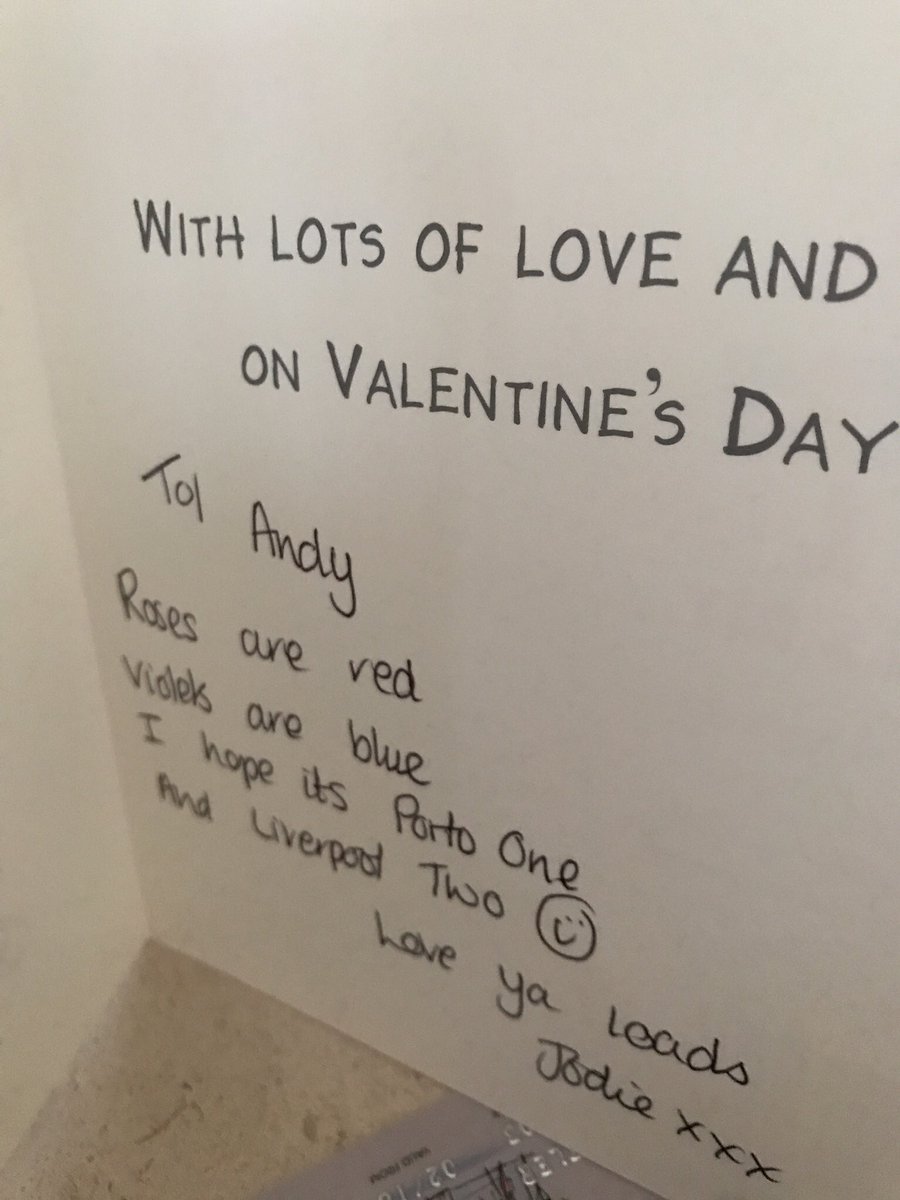 WITH LOTS OF LOVE AND
ON VALENTINE'S DAY
To/ Andy
Roses are red
Violets are blue
I hope its Porto One
And Liverpool Two
Love ya loads
Jodie xxx
VALID FROM
02/1